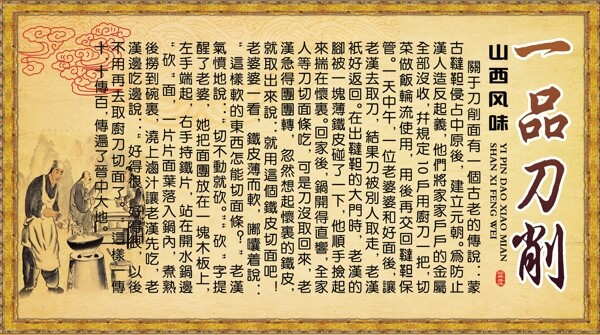 一品刀削
YI PIN DAO XIAO MIAN
SHAN XI FENG WEI
山西风味
關于刀削面有一個古老的傳說：蒙
古韃靼侵占中原後，建立元朝。爲防止
漢人造反起義，他們將家家戶戶的金屬
全部沒收，幷規定10戶用廚刀一把，切
菜做飯輪流使用，用後再交回韃靼保
管。一天中午，一位老婆婆和好面後，讓
老漢去取刀，結果刀被別人取走，老漢
衹好返回。在出韃靼的大門時，老漢的
脚被一塊薄鐵皮碰了一下，他順手撿起
來揣在懷裏。回家後，鍋開得直響，全家
人等刀切面條吃，可是刀沒取回來，老
漢急得團團轉，忽然想起懷裏的鐵皮，
就取出來説：就用這個鐵皮切面吧！
老婆婆一看，鐵皮薄而軟，嘟囔着說：
“這樣軟的東西怎能切面條？”老漢
氣憤地說：“切不動就砍。”“砍”字提
醒了老婆，她把面團放在一塊木板上，
左手端起，右手持鐵片，站在開水鍋邊
“砍”面，一片片面葉落入鍋內，煮熟
後撈到碗裏，澆上滷汁讓老漢先吃，老
漢邊吃邊說：“好得很，好得很，以後
不用再去取廚刀切面了。”這樣一傳
十，十傳百，傳遍了晉中大地。